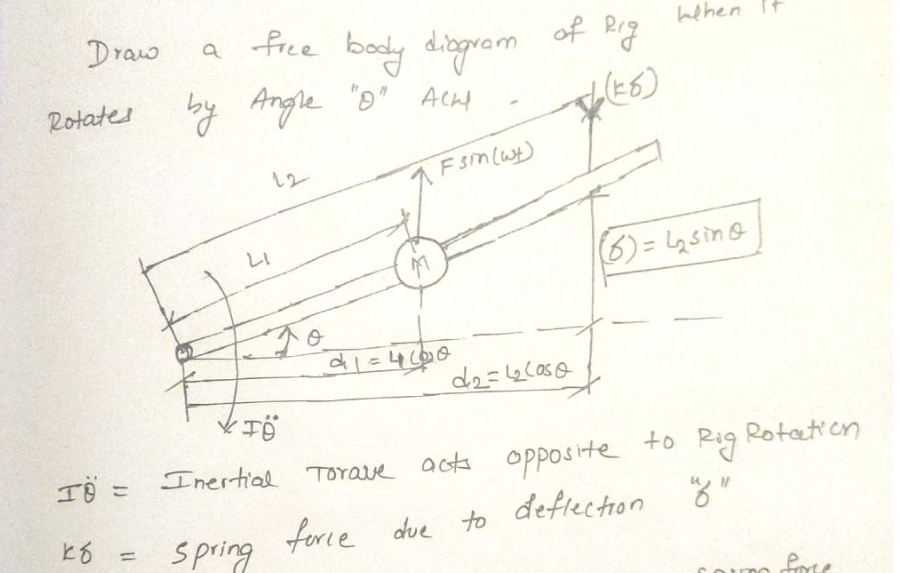 Draw a free body diagram of Rig when it
Rotates by Angle "θ" ACW.
(kδ)
F sin(ωt)
L2
L1
M
(δ) = L2 sin θ
θ
d1 = L1 cos θ
d2 = L2 cos θ
Iθ̈
Iθ̈ = Inertial Torque acts opposite to Rig Rotation
kδ = spring force due to deflection "δ"
spring force